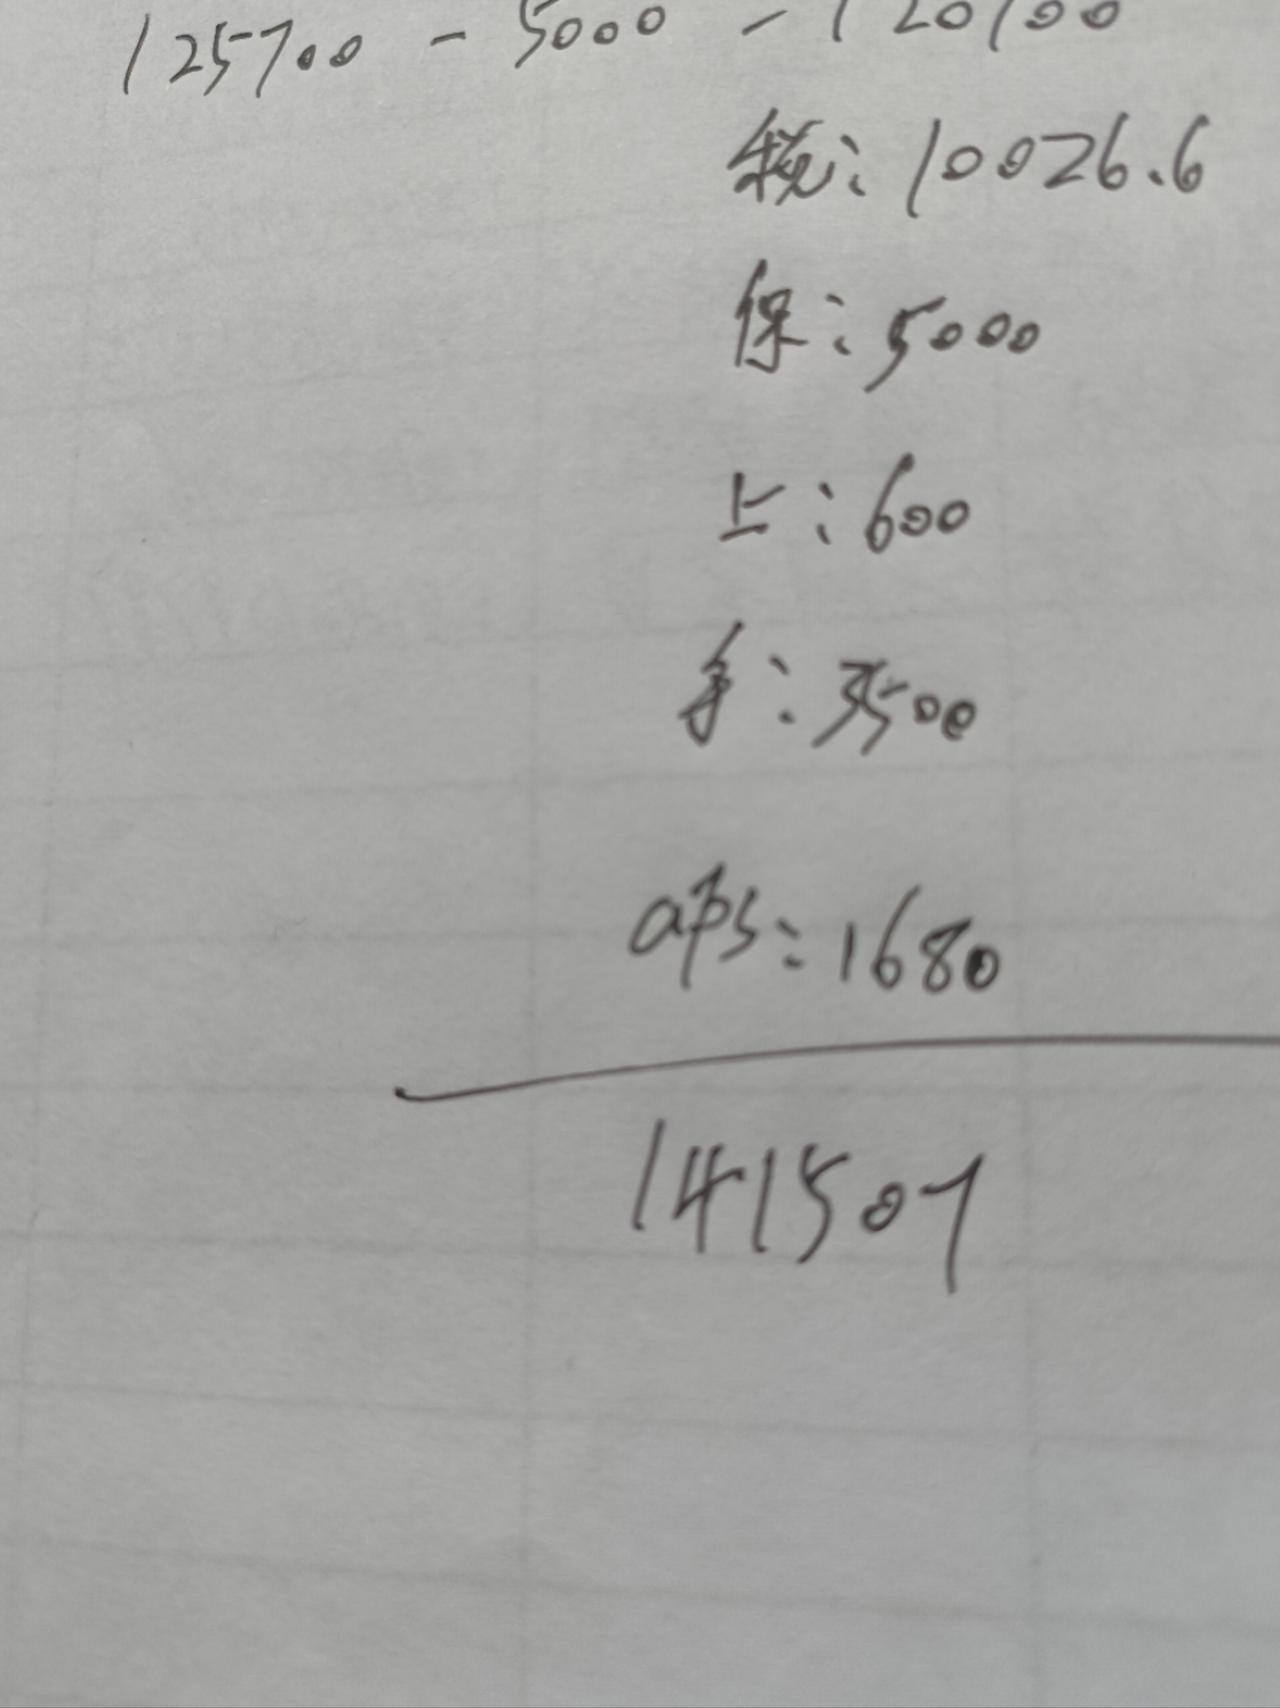 125700 - 5000 - 120700
税：10026.6
保：5000
上：600
手：3500
aps：1680
141507